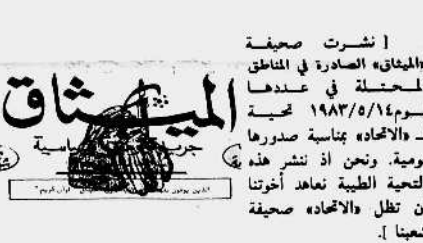 [ نشــرت صحيفــة
«الميثاق» الصادرة في المناطق
المحــتــلة في عــددهــا
يــوم ١٩٨٣/٥/١٤ تحــيــة
لـ «الاتحاد» بمناسبة صدورها
يومية. ونحن اذ ننشر هذه
التحية الطيبة نعاهد أخوتنا
ان تظل «الاتحاد» صحيفة
شعبنا ].
الميــثاق